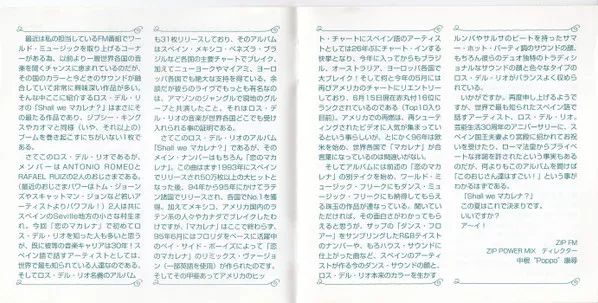 最近は私の担当しているFM番組でワー
ルド・ミュージックを取り上げるコーナー
がある為、以前より一層世界各国の音
楽を聞くチャンスに恵まれているのだが、
その国のカラーと今どきのサウンドが融
合していて非常に興味深い作品が多い。
そんな中ここに紹介するロス・デル・リ
オの「Shall we マカレナ?」はまさにそ
の最たる作品であり、ジプシー・キング
スやカオマと同様(いや、それ以上)の
ブームを巻き起こすにちがいない1枚で
ある。
さてこのロス・デル・リオであるが、
メンバーはANTONIO ROMEOと
RAFAEL RUIZの2人のおじさまである。
(最近のおじさまパワーはトム・ジョーン
ズやスキャットマン・ジョンなど若いアー
ティストよりパワフル!) 2人は共に
スペインのSeville地方の小さな村生ま
れ。今回「恋のマカレナ」で初めてロ
ス・デル・リオを知った人も多いと思う
が、既に彼等の音楽キャリアは30年!ス
ペイン語で話すアーティストとしては、
世界で最も知られている人達なのである。
そしてロス・デル・リオ名義のアルバム
も31枚リリースしており、そのアルバム
はスペイン・メキシコ・ベネズエラ・ブラ
ジルなど各国の主要チャートでブレイク、
加えてニューヨークやマイアミ、ヨーロッ
パ各国でも絶大な支持を得ている。余
談だが彼らのライブでもっとも有名なの
は、アマゾンのジャングルで現地のグルー
プと共演したこと。それはロス・デル・
リオの音楽が世界各国どこでも受け
入れられる事の証明である。
さてこのロス・デル・リオのアルバム
「Shall we マカレナ?」であるが、その
メイン・ナンバーはもちろん「恋のマカ
レナ」。この曲はまず1993年にスペイン
でリリースされ50万枚以上の大ヒットと
なった後、94年から95年にかけてラテ
ン語圏でリリースされ、各国でNo.1を獲
得。加えてメキシコ、アメリカ国内のラ
テン系の人々やカナダでブレイクしたわ
けですが、「マカレナ」はここで終わらず、
95年6月にはフロリダをベースに活躍中
のベイ・サイド・ボーイズによって「恋
のマカレナ」のリミックス・ヴァージョ
ン(一部英語を使用)が作られたのです。
そしてその甲斐あってアメリカのヒッ
ト・チャートにスペイン語のアーティス
トとしては26年ぶりにチャート・インする
快挙となり、今年に入ってからもブラジ
ル、オーストラリア、ヨーロッパ各国で
大ブレイク!そして何と今年の5月には
再びアメリカのチャートにリエントリー
しており、6月15日現在赤丸付16位に
ランクされているのである(Top10入り
目前)。アメリカでの再燃は、再シューテ
ィングされたビデオに人気が集まってい
るという事らしいが、とにかく96年は欧
米を始め、世界各国で「マカレナ」が合
言葉になっているのは間違いがない。
そしてアルバムには前述の「恋のマカ
レナ」の別テイクを始め、ワールド・ミュ
ージック・フリークにもダンス・ミュ
ージック・フリークにも納得してもらえ
る珠玉の作品が達なっている。聞いてい
ただければ、その面白さがわかってもら
えると思うが、ザップの「ダンス・フロ
アー」をサンプリングしたR&Bテイスト
のナンバーや、もろハウス・サウンドに
仕上がった曲など、スペインのアーティ
ストが作る今のダンス・サウンドの顔と、
ロス・デル・リオ本来のカラーを生かす
ルンバやサルサのビートを持ったサマ
ー・ホット・パーティ調のサウンドの顔、
もちろん彼らのデュオ独特のトラディシ
ョナルなサウンドの顔と色々なタイプの
ロス・デル・リオがバランスよく収めら
れている。
いかがですか。再度申し上げるようで
すが、世界で最も知られたスペイン語で
話すアーティスト、ロス・デル・リオ。
芸能生活30周年のアニバーサリーに、ス
ペイン国王夫妻より宮殿に招かれてお祝
いを受けたり、ローマ法皇からプライベ
ートな拝謁を許されたという事実もある
のだが、何よりもこのアルバムを聞けば
「このおじさん達はすごい!」という事が
わかるはずである。
「Shall we マカレナ?」
この夏はこれで決まりです。
いいですか?
ア〜イ!
ZIP FM
ZIP POWER MIX ディレクター
中根 "Poppo" 康尋